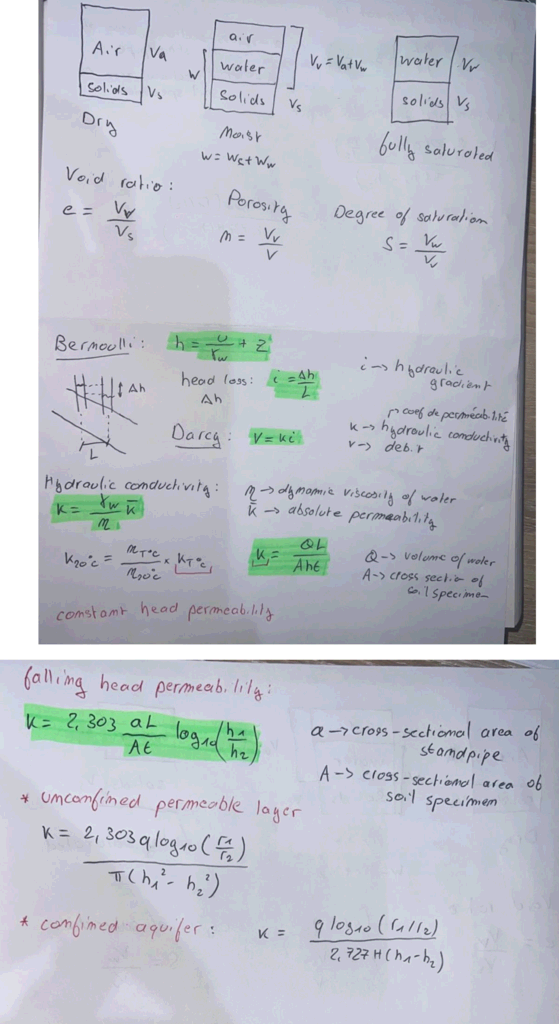 Air Va
Solids Vs
Dry
air
water
solids
W
Vv = Va + Vw
Vs
Moist
W = Ws + Ww
water Vv
solids Vs
fully saturated
Void ratio:
e = Vv / Vs
Porosity
n = Vv / V
Degree of saturation
S = Vw / Vv
Bernoulli: h = u / γw + z
head loss: i = Δh / L
Δh
i → hydraulic
gradient
Δh
L
Darcy: V = ki
coef de perméabilité
k → hydraulic conductivity
v → debit
Hydraulic conductivity:
k = γw / η k̄
η → dynamic viscosity of water
k̄ → absolute permeability
k20°C = ηT°C / η20°C × kT°C
k = QL / Aht
Q → volume of water
A → cross section of
soil specimen
constant head permeability
falling head permeability:
k = 2,303 aL / At log10(h1 / h2)
a → cross-sectional area of
standpipe
A → cross-sectional area of
soil specimen
* unconfined permeable layer
k = 2,303 q log10(r1 / r2) / π(h1² - h2²)
* confined aquifer: k = q log10(r1/r2) / 2,727 H(h1-h2)